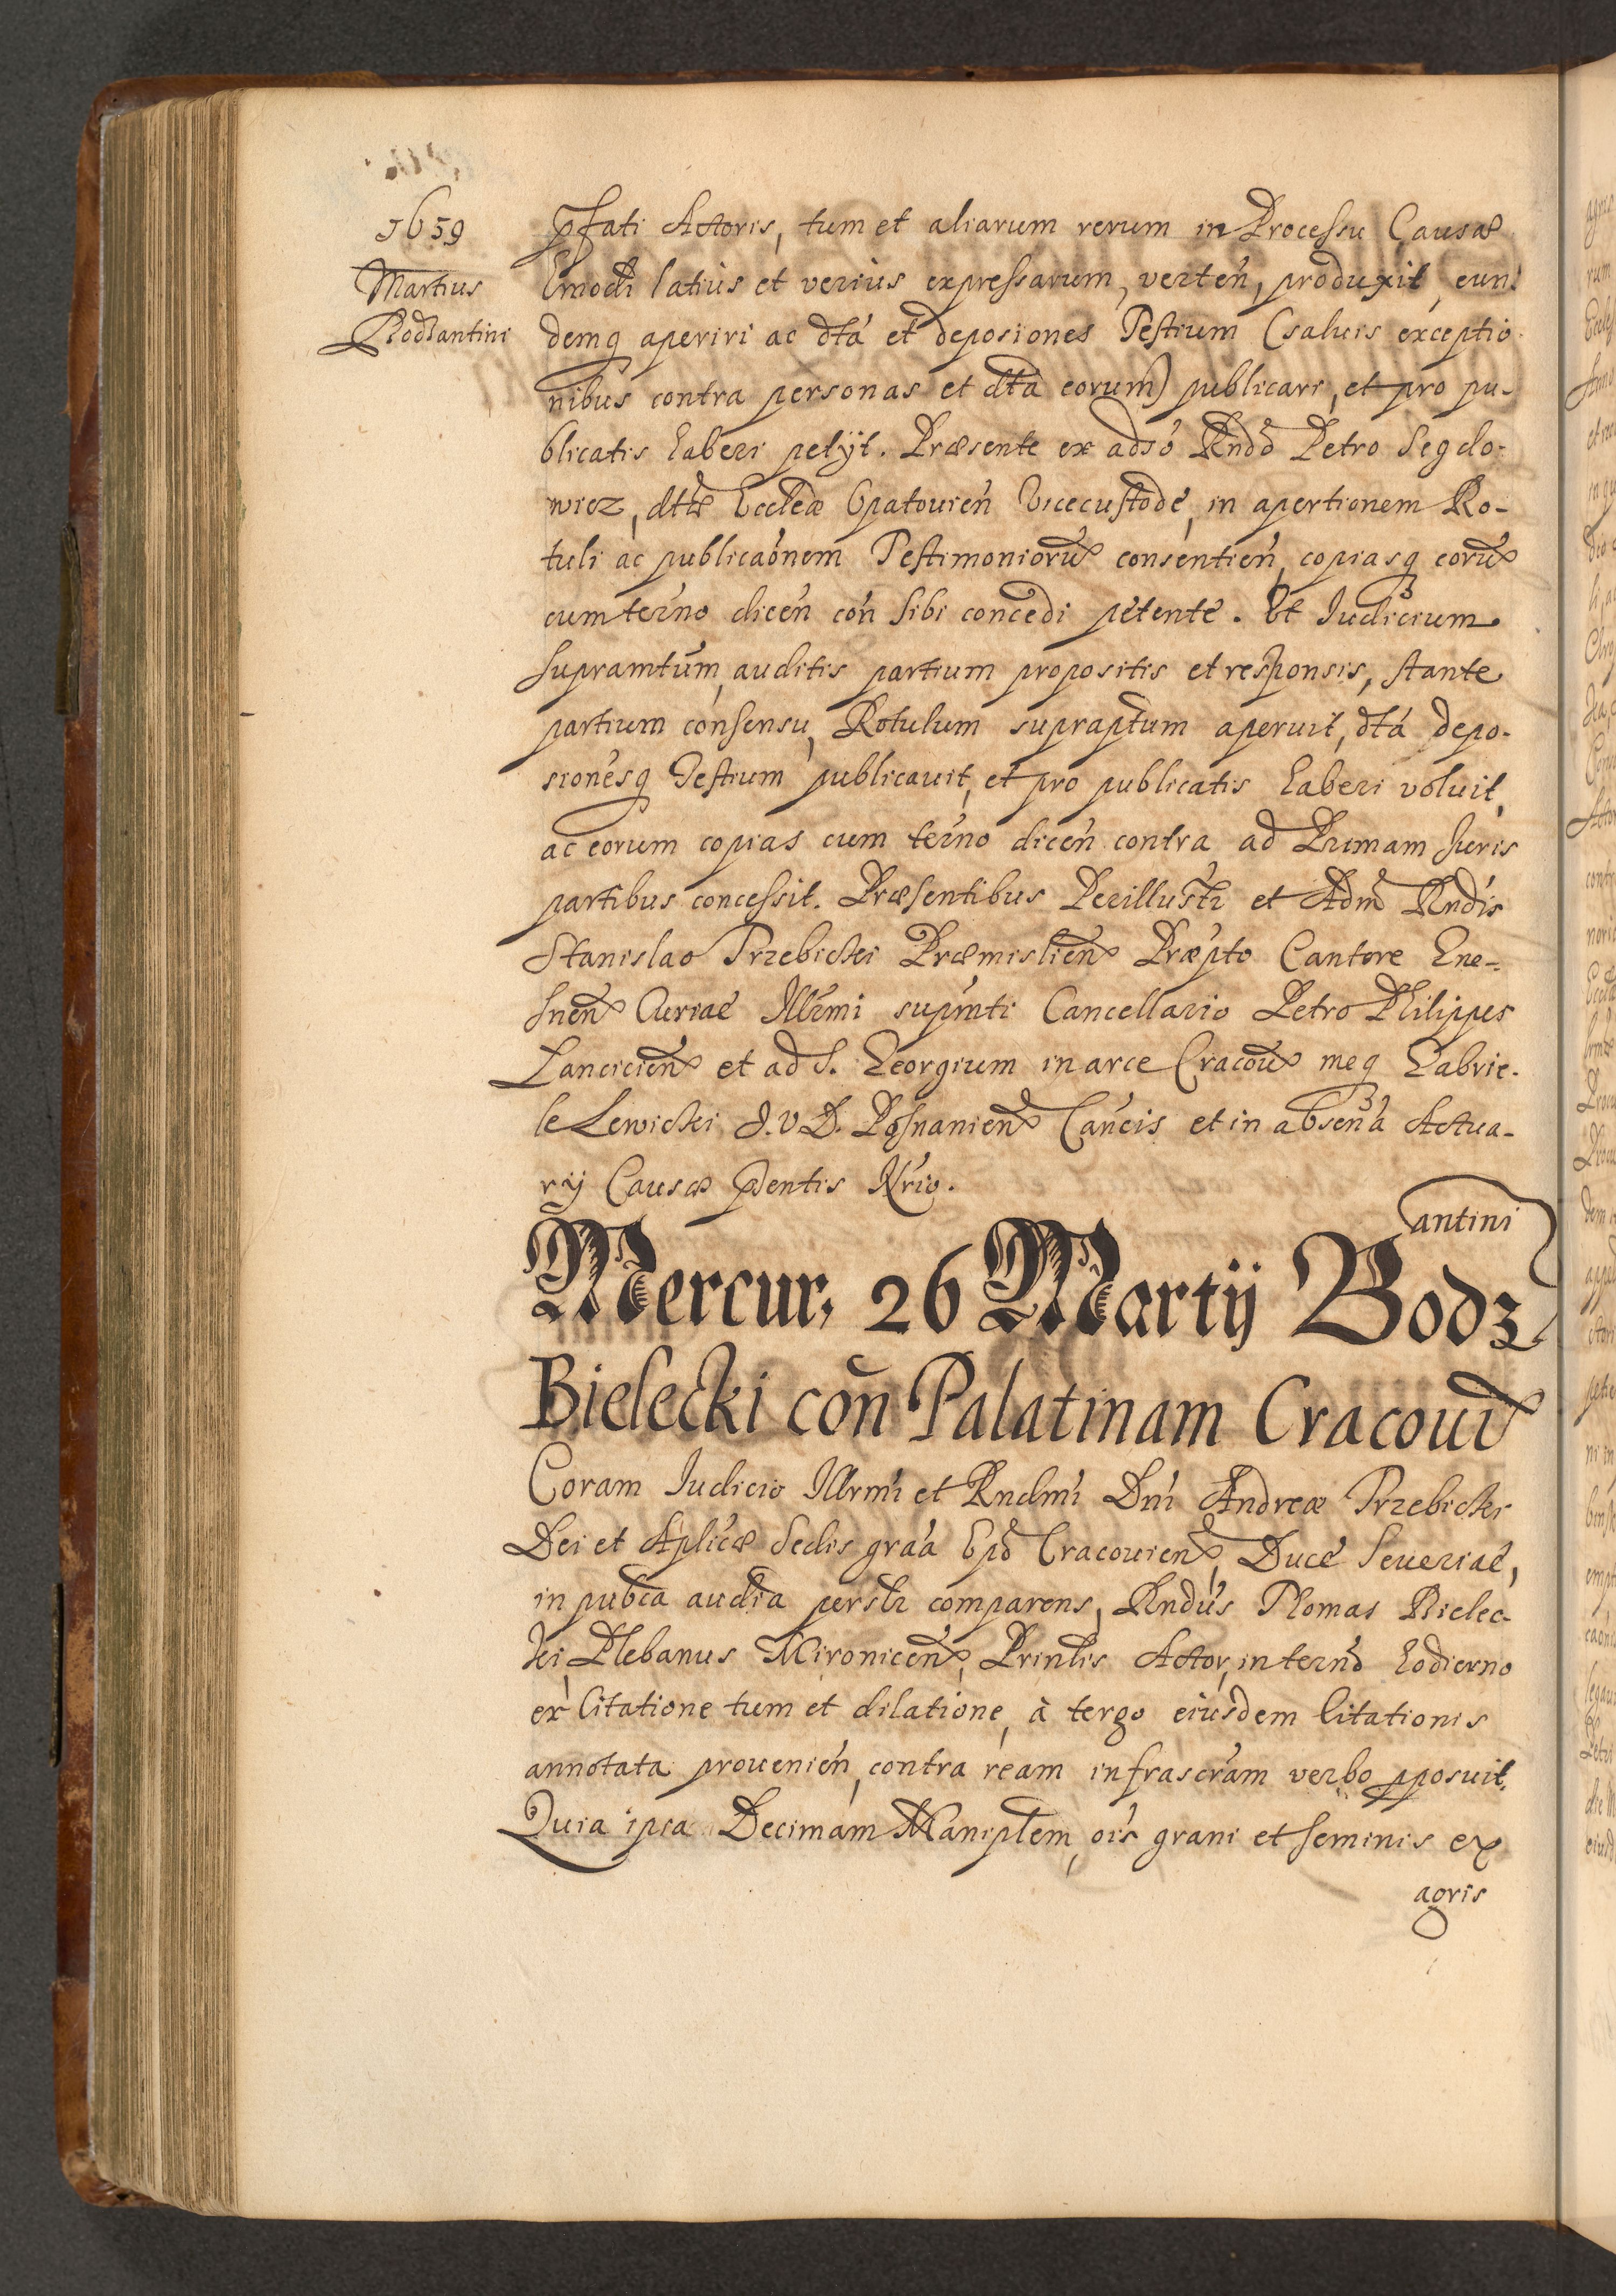 1659
Martius
Bodzantini
pfati Actoris, tum et aliarum rerum in Processu Causæ
hmodi latius et verius expressarum, verteñ, produxit, eun-
demq aperiri ac dtá et deposiones Testium (saluis exceptio-
nibus contra personas et dta eorum) publicari, et pro pu-
blicatis haberi petÿt. Præsente ex adsó Rndo Petro Segdo-
wicz, dttæ Eccleæ Opatouieñ Vicecustode, in apertionem Ro-
tuli ac publicaónem Testimonioru consentieñ, copiasq eoru
cum terno diceñ coñ sibi concedi petente. Et Iudicium
supramtum, auditis partium propositis et responsis, stante
partium consensu, Rotulum supraptum aperuit, dtá depo-
sionesq Testium publicauit, et pro publicatis haberi voluit,
ac eorum copias cum terno diceñ contra ad Primam Iuris
partibus concessit. Præsentibus Perillustr et Adm Rndis
Stanislao Trzebicki Præmislieñ Præpto Cantore Gne-
sneñ Curiae Illrmi supmti Cancellario Petro Philippus
Lancicieñ et ad S. Georgium in arce Cracou meq Gabrie-
le Lewicki I.V.D. Posnanieñ Cancis et in absená Actua-
rÿ Causæ pdentis Nrio.
antini
Mercur, 26 Martÿ Bodz
Bielecki coñ Palatinam Cracoui
Coram Iudicio Illrmi et Rndmi Dni Andreæ Trzebicki
Dei et Aplicæ Sedis graá Epo Cracouieñ, Duce Seueriae,
in pubca audia persltr comparens, Rndus Thomas Bielec-
ki Plebanus Mironiceñ, Prinlis Actor, in terno hodierno
ex Citatione tum et dilatione, à tergo eiusdem Citationis
annotata prouenieñ, contra ream infrascrám verbo pposuit.
Quia ipsa Decimam Maniplem, ois grani et seminis ex
agris